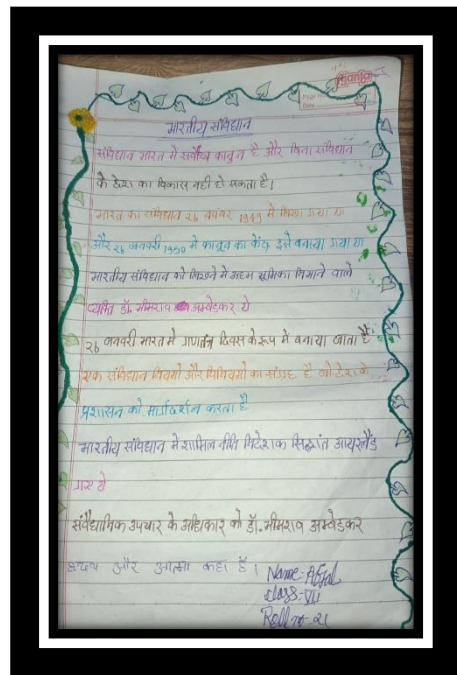 Ajanta
Page No.
Date
भारतीय संविधान
संविधान भारत में सर्वोच्च कानून है और बिना संविधान
के देश का विकास नहीं हो सकता है।
भारत का संविधान 26 नवंबर 1949 में लिखा गया था
और 26 जनवरी 1950 में कानून का केंद्र इसे बनाया गया था
भारतीय संविधान को लिखने में अहम भूमिका निभाने वाले
व्यक्ति डॉ. भीमराव अम्बेडकर थे
26 जनवरी भारत में गणतंत्र दिवस के रूप में बनाया जाता है
एक संविधान नियमों और विनियमों का संग्रह है जो देश के
प्रशासन को मार्गदर्शन करता है
भारतीय संविधान में शामिल नीति निदेशक सिद्धांत आयरलैंड
गए थे
संवैधानिक उपचार के अधिकार को डॉ. भीमराव अम्बेडकर
हृदय और आत्मा कहा है।
Name:- Afzal
class:- VII
Roll no - 21